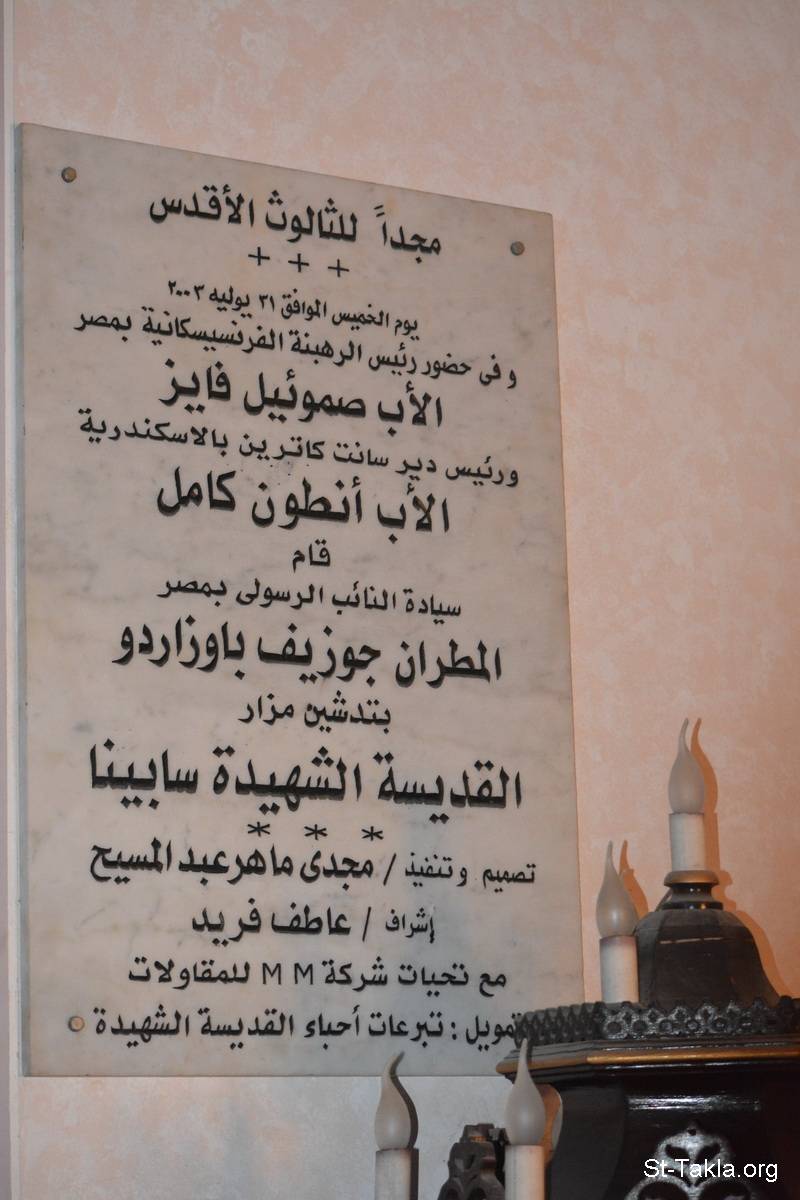 مجداً للثالوث الأقدس
+ + +
يوم الخميس الموافق ٣١ يوليه ٢٠٠٣
و فى حضور رئيس الرهبنة الفرنسيسكانية بمصر
الأب صموئيل فايز
ورئيس دير سانت كاترين بالاسكندرية
الأب أنطون كامل
قام
سيادة النائب الرسولى بمصر
المطران جوزيف باوزاردو
بتدشين مزار
القديسة الشهيدة سابينا
* * *
تصميم وتنفيذ / مجدى ماهر عبد المسيح
إشراف / عاطف فريد
مع تحيات شركة M M للمقاولات
تمويل : تبرعات أحباء القديسة الشهيدة
St-Takla.org